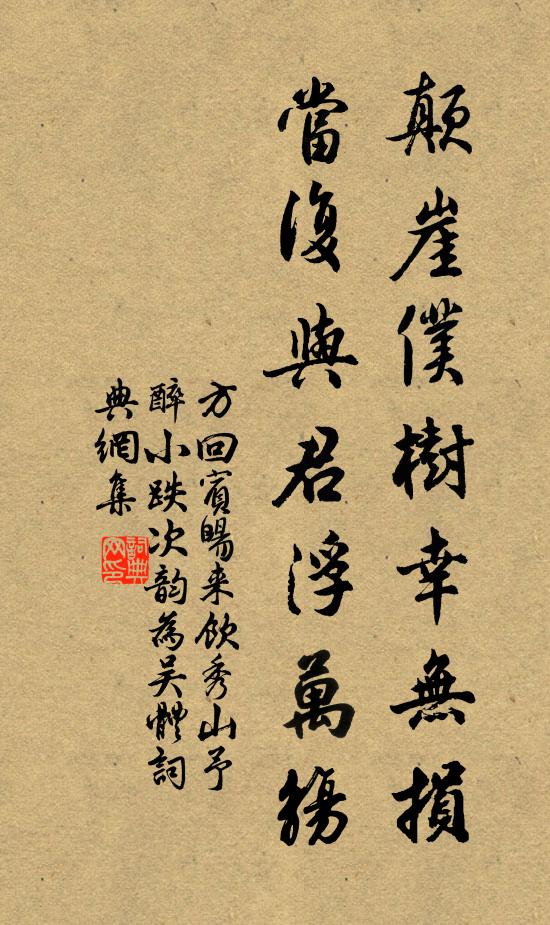 顛崖僕樹幸無損
當復與君浮萬觴
方回賓暘来飲秀山予
醉小跌次韵為吴體詞
典網集
詞典
网印